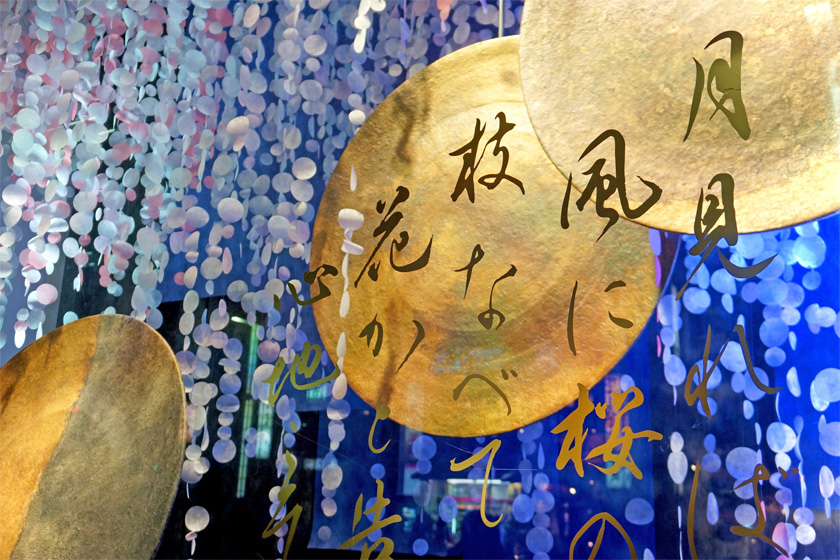 月見れば
風に桜の
枝なべて
花かと告
心地こ